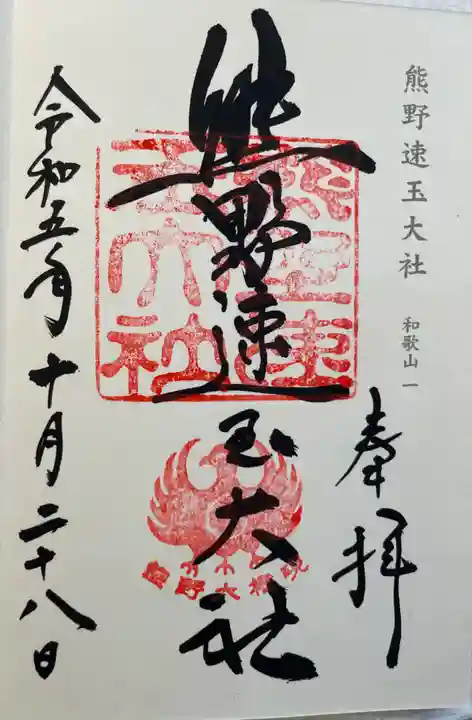 熊野速玉大社 和歌山 一
奉拝
熊野速玉大社
熊野速
玉大社
熊野大権現
令和五年十月二十八日